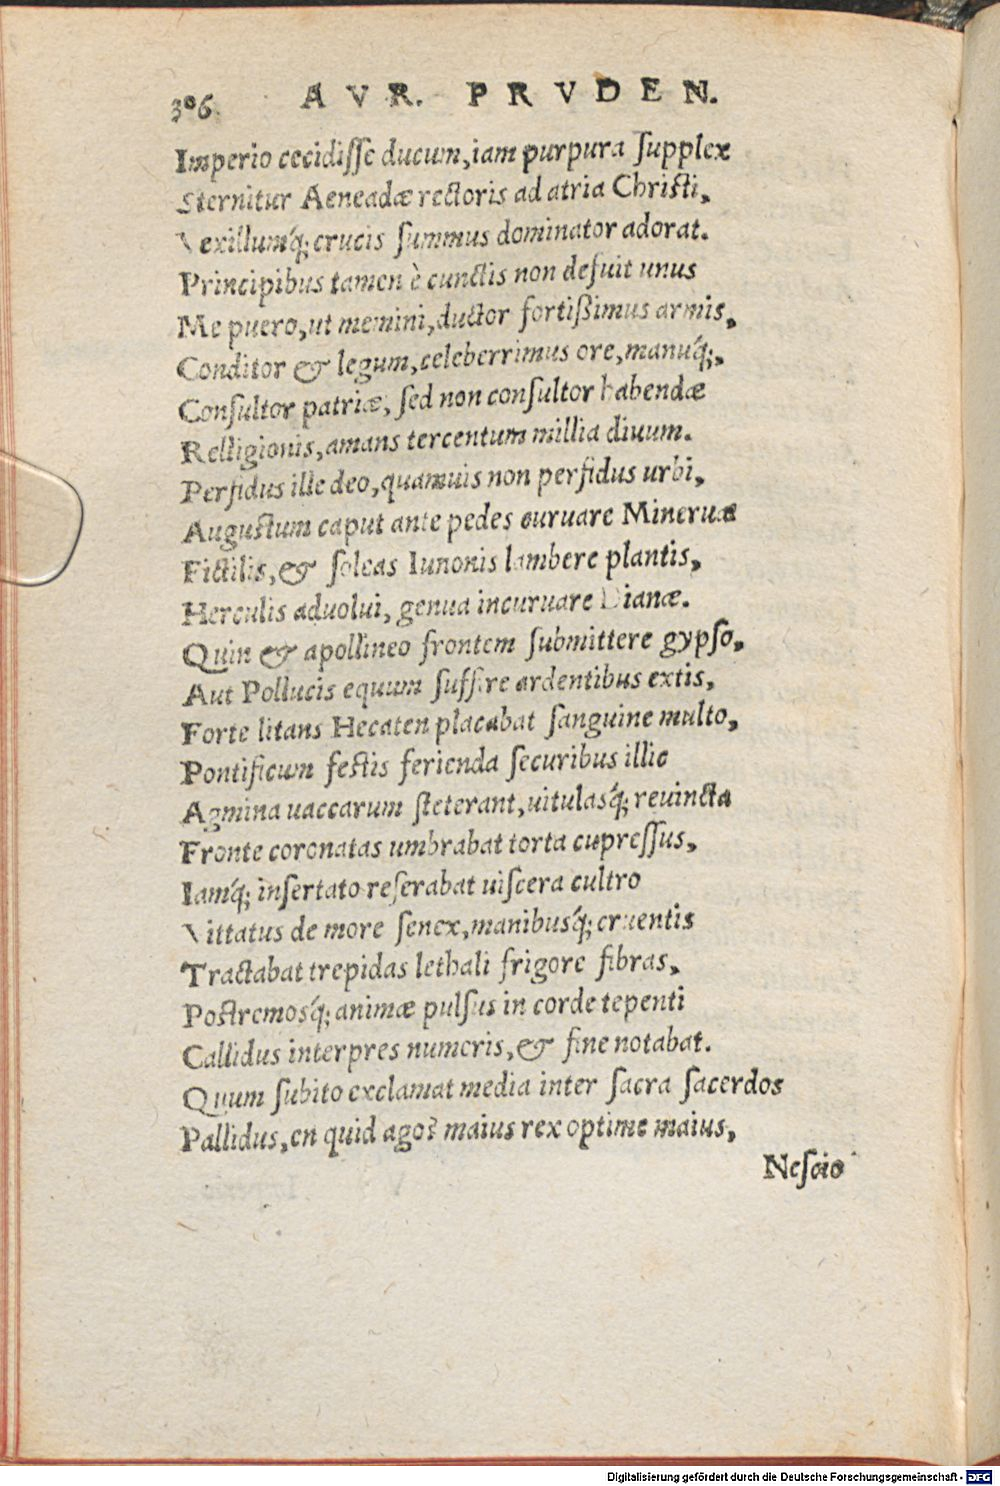 306 AVR. PRVDEN.
Imperio cecidisse ducum, iam purpura supplex
Sternitur Aeneadæ rectoris ad atria Christi,
Vexillumq́; crucis summus dominator adorat.
Principibus tamen è cunctis non defuit unus
Me puero, ut memini, ductor fortißimus armis,
Conditor & legum, celeberrimus ore, manuq́;,
Consultor patriæ, sed non consultor habendæ
Relligionis, amans tercentum millia diuum.
Perfidus ille deo, quamuis non perfidus urbi,
Augustum caput ante pedes curuare Mineruæ
Fictilis, & soleas Iunonis lambere plantis,
Herculis aduolui, genua incuruare Dianæ.
Quin & apollineo frontem submittere gypso,
Aut Pollucis equum suffire ardentibus extis,
Forte litans Hecaten placabat sanguine multo,
Pontificum festis ferienda securibus illic
Agmina uaccarum steterant, uitulasq́; reuincta
Fronte coronatas umbrabat torta cupressus,
Iamq́; insertato reserabat uiscera cultro
Vittatus de more senex, manibusq́; cruentis
Tractabat trepidas lethali frigore fibras,
Postremosq́; animæ pulsus in corde tepenti
Callidus interpres numeris, & fine notabat.
Quum subito exclamat media inter sacra sacerdos
Pallidus, en quid ago? maius rex optime maius,
Nescio
Digitalisierung gefördert durch die Deutsche Forschungsgemeinschaft - DFG